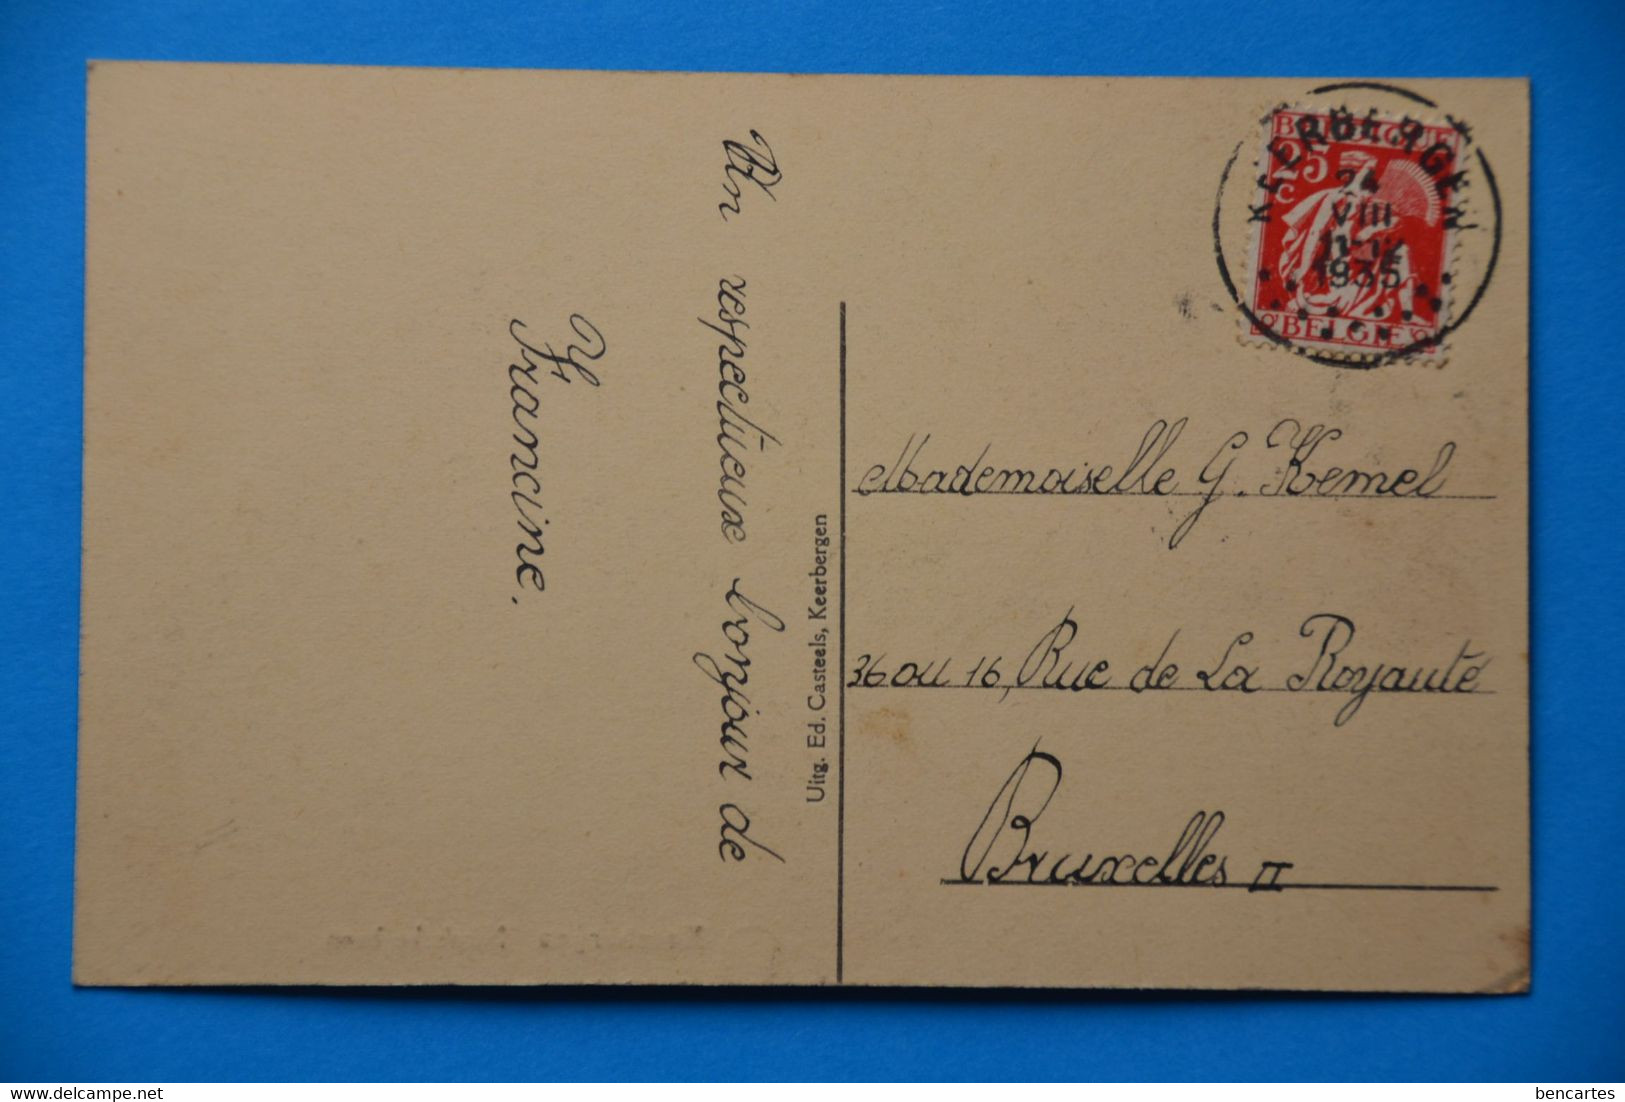 Un respectueux bonjour de
Y. Francine.
Uitg. Ed. Casteels, Keerbergen
BELGIQUE
25
C
BELGIE
KEERBERGEN
24
VIII
1935
Mademoiselle G. Kemel
36 ou 16, Rue de La Royauté
Bruxelles II
delcampe.net
bencartes